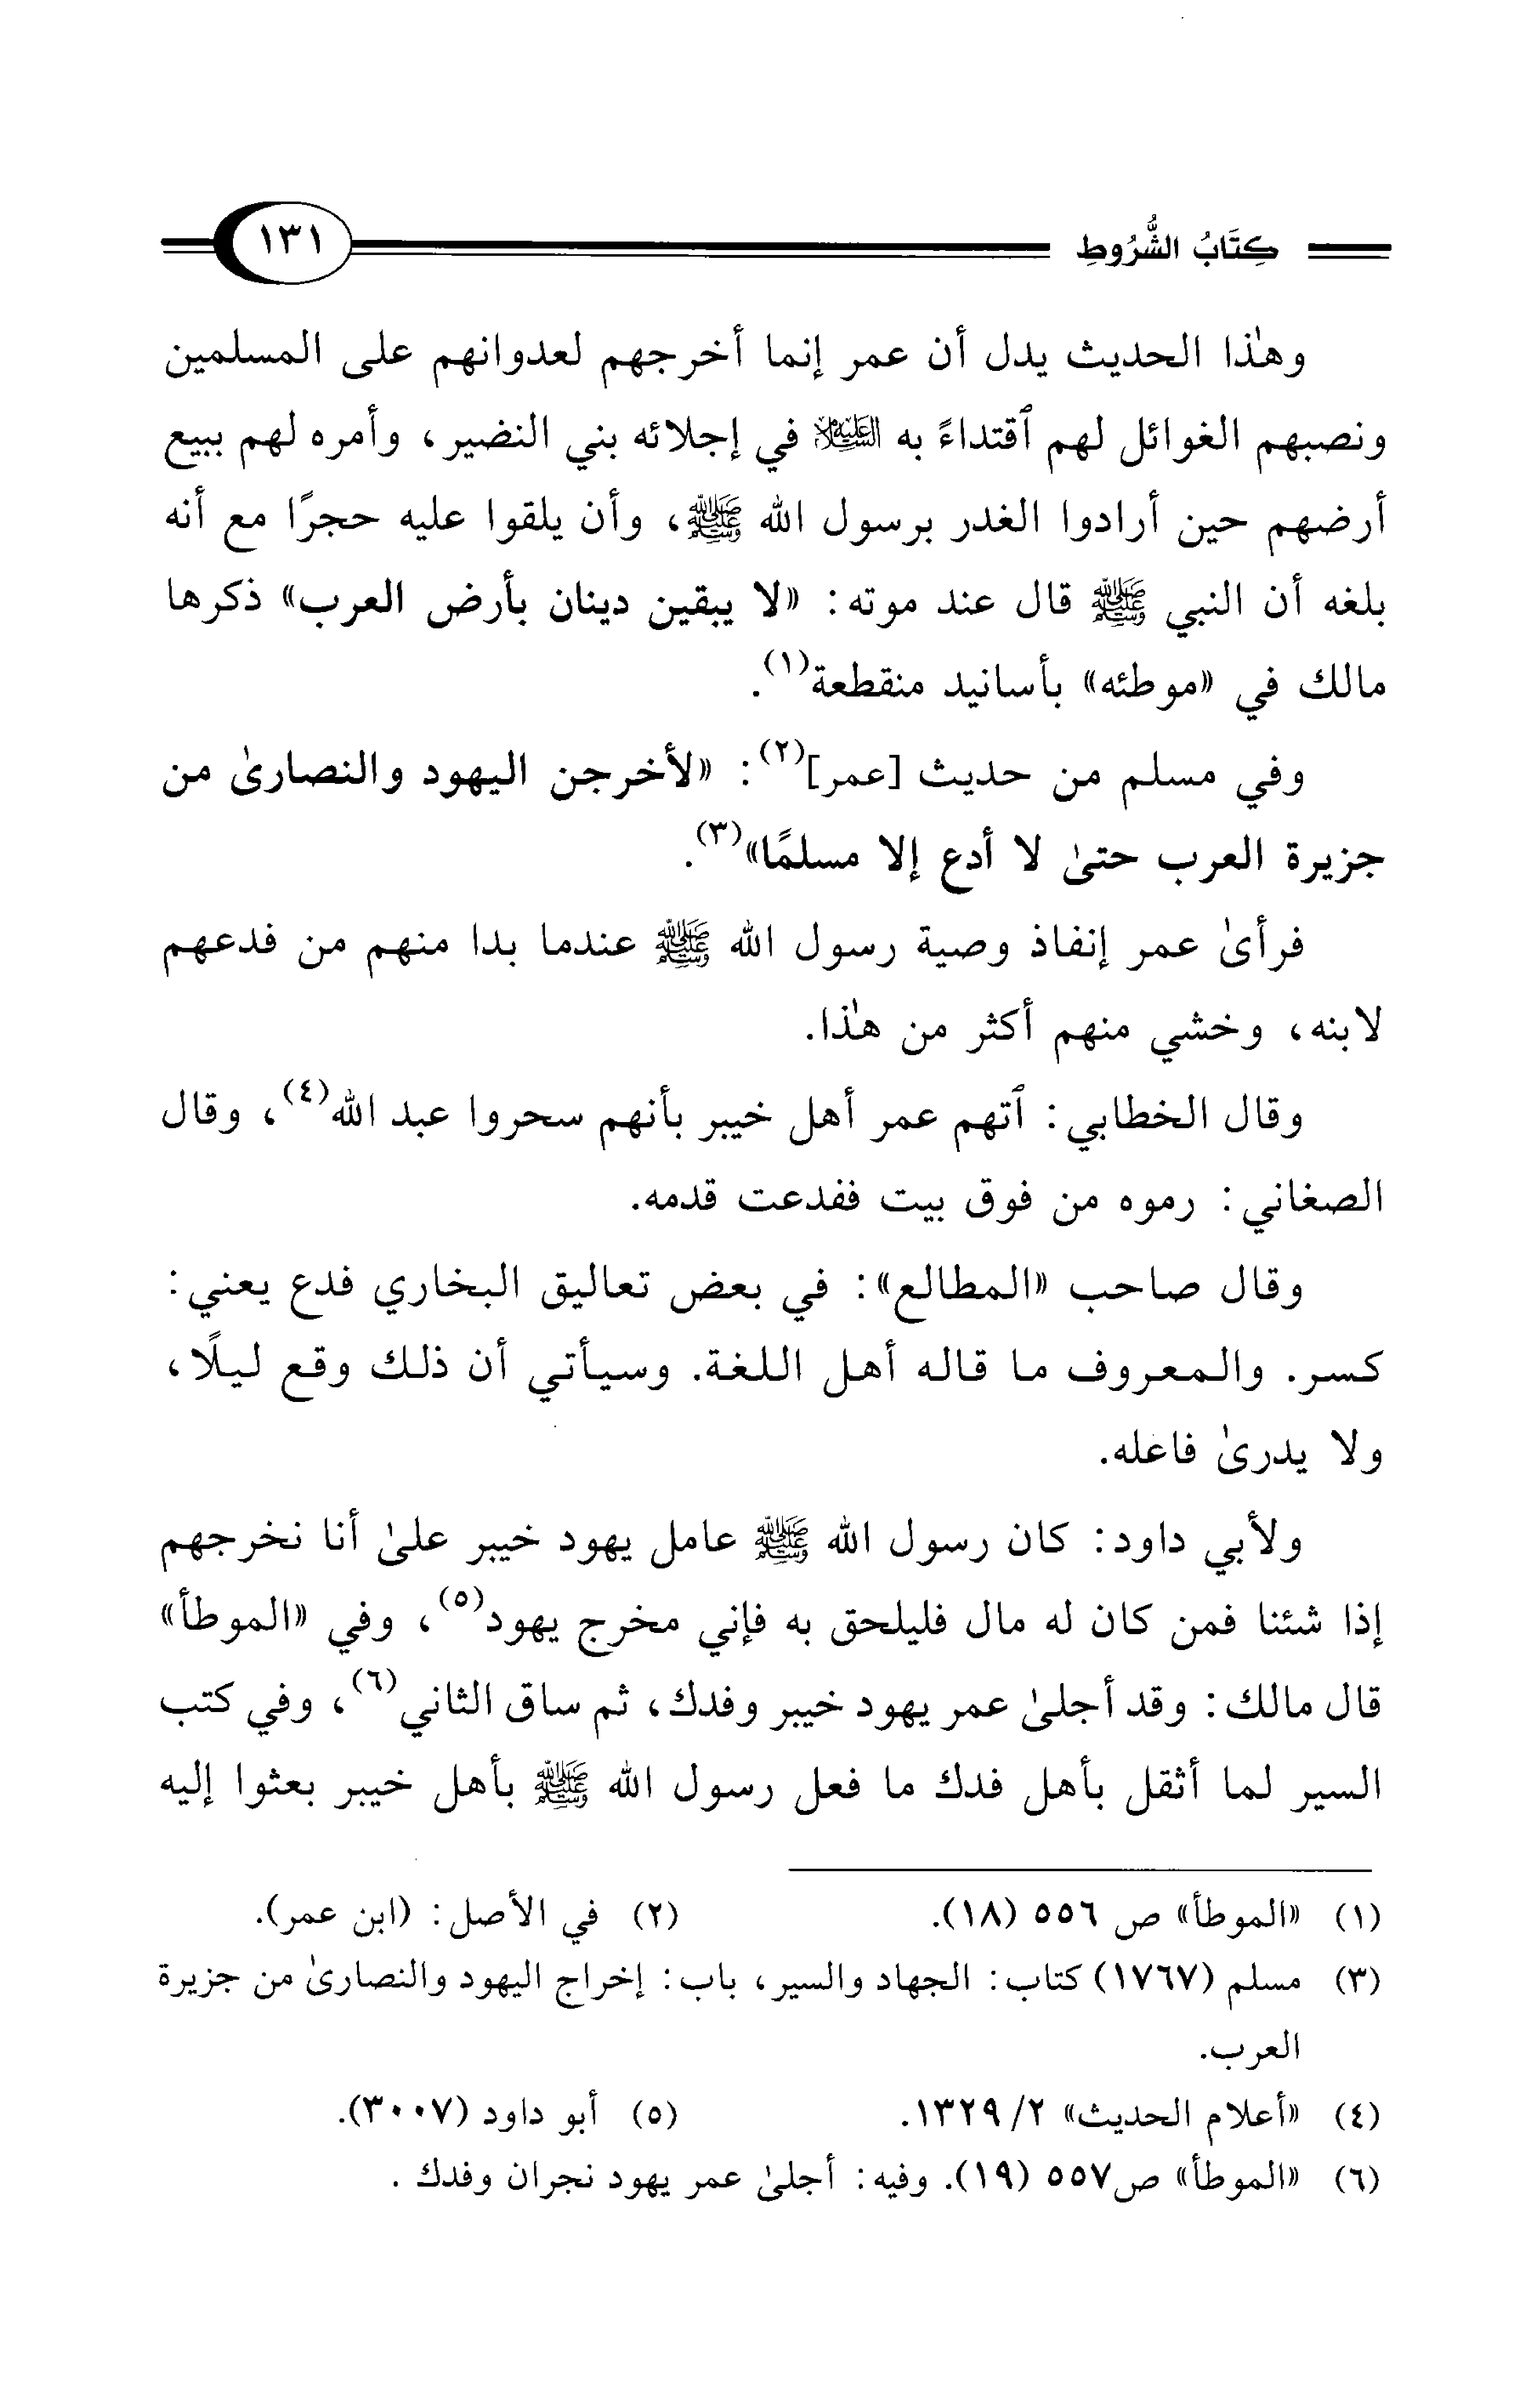 كِتَابُ الشُّرُوطِ ١٣١
وهٰذا الحديث يدل أن عمر إنما أخرجهم لعدوانهم على المسلمين
ونصبهم الغوائل لهم ٱقتداءً به عليه السلام في إجلائه بني النضير، وأمره لهم ببيع
أرضهم حين أرادوا الغدر برسول الله ﷺ، وأن يلقوا عليه حجرًا مع أنه
بلغه أن النبي ﷺ قال عند موته: «لا يبقين دينان بأرض العرب» ذكرها
مالك في «موطئه» بأسانيد منقطعة(١).
وفي مسلم من حديث [عمر](٢): «لأخرجن اليهود والنصارىٰ من
جزيرة العرب حتىٰ لا أدع إلا مسلمًا»(٣).
فرأىٰ عمر إنفاذ وصية رسول الله ﷺ عندما بدا منهم من فدعهم
لابنه، وخشي منهم أكثر من هٰذا.
وقال الخطابي: ٱتهم عمر أهل خيبر بأنهم سحروا عبد الله(٤)، وقال
الصغاني: رموه من فوق بيت ففدعت قدمه.
وقال صاحب «المطالع»: في بعض تعاليق البخاري فدع يعني:
كسر. والمعروف ما قاله أهل اللغة. وسيأتي أن ذلك وقع ليلًا،
ولا يدرىٰ فاعله.
ولأبي داود: كان رسول الله ﷺ عامل يهود خيبر علىٰ أنا نخرجهم
إذا شئنا فمن كان له مال فليلحق به فإني مخرج يهود(٥)، وفي «الموطأ»
قال مالك: وقد أجلىٰ عمر يهود خيبر وفدك، ثم ساق الثاني(٦)، وفي كتب
السير لما أثقل بأهل فدك ما فعل رسول الله ﷺ بأهل خيبر بعثوا إليه
(١) «الموطأ» ص ٥٥٦ (١٨). (٢) في الأصل: (ابن عمر).
(٣) مسلم (١٧٦٧) كتاب: الجهاد والسير، باب: إخراج اليهود والنصارىٰ من جزيرة
العرب.
(٤) «أعلام الحديث» ٢/ ١٣٢٩. (٥) أبو داود (٣٠٠٧).
(٦) «الموطأ» ص٥٥٧ (١٩). وفيه: أجلىٰ عمر يهود نجران وفدك .